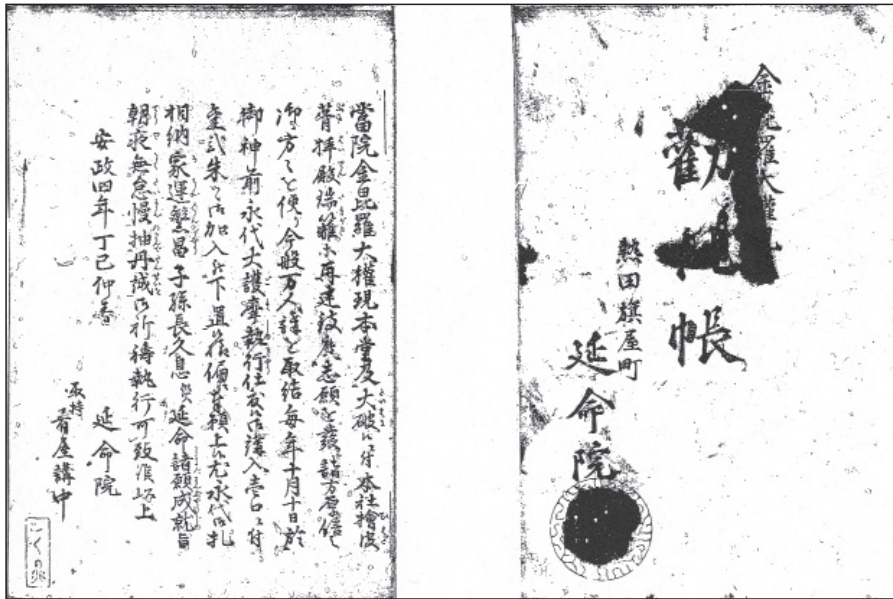 金毘羅大權
勸 帳
熱田旗屋町
延命院
當院金毘羅大權現本堂及大破ニ付本社檜皮
葺拝殿瑞籬ホ再建致度志願を發諸方有信
御方々を便り今般万人講を取結毎年十月十日於
御神前永代大護摩執行仕度 講入壱口ニ付
金弐朱 御加入 下置 永代御札
相納家運繁昌子孫長久息災延命諸願成就旨
朝夜無怠慢抽丹誠御祈祷執行可致候以上
安政四年丁巳仲春
延命院
取持
肴屋講中